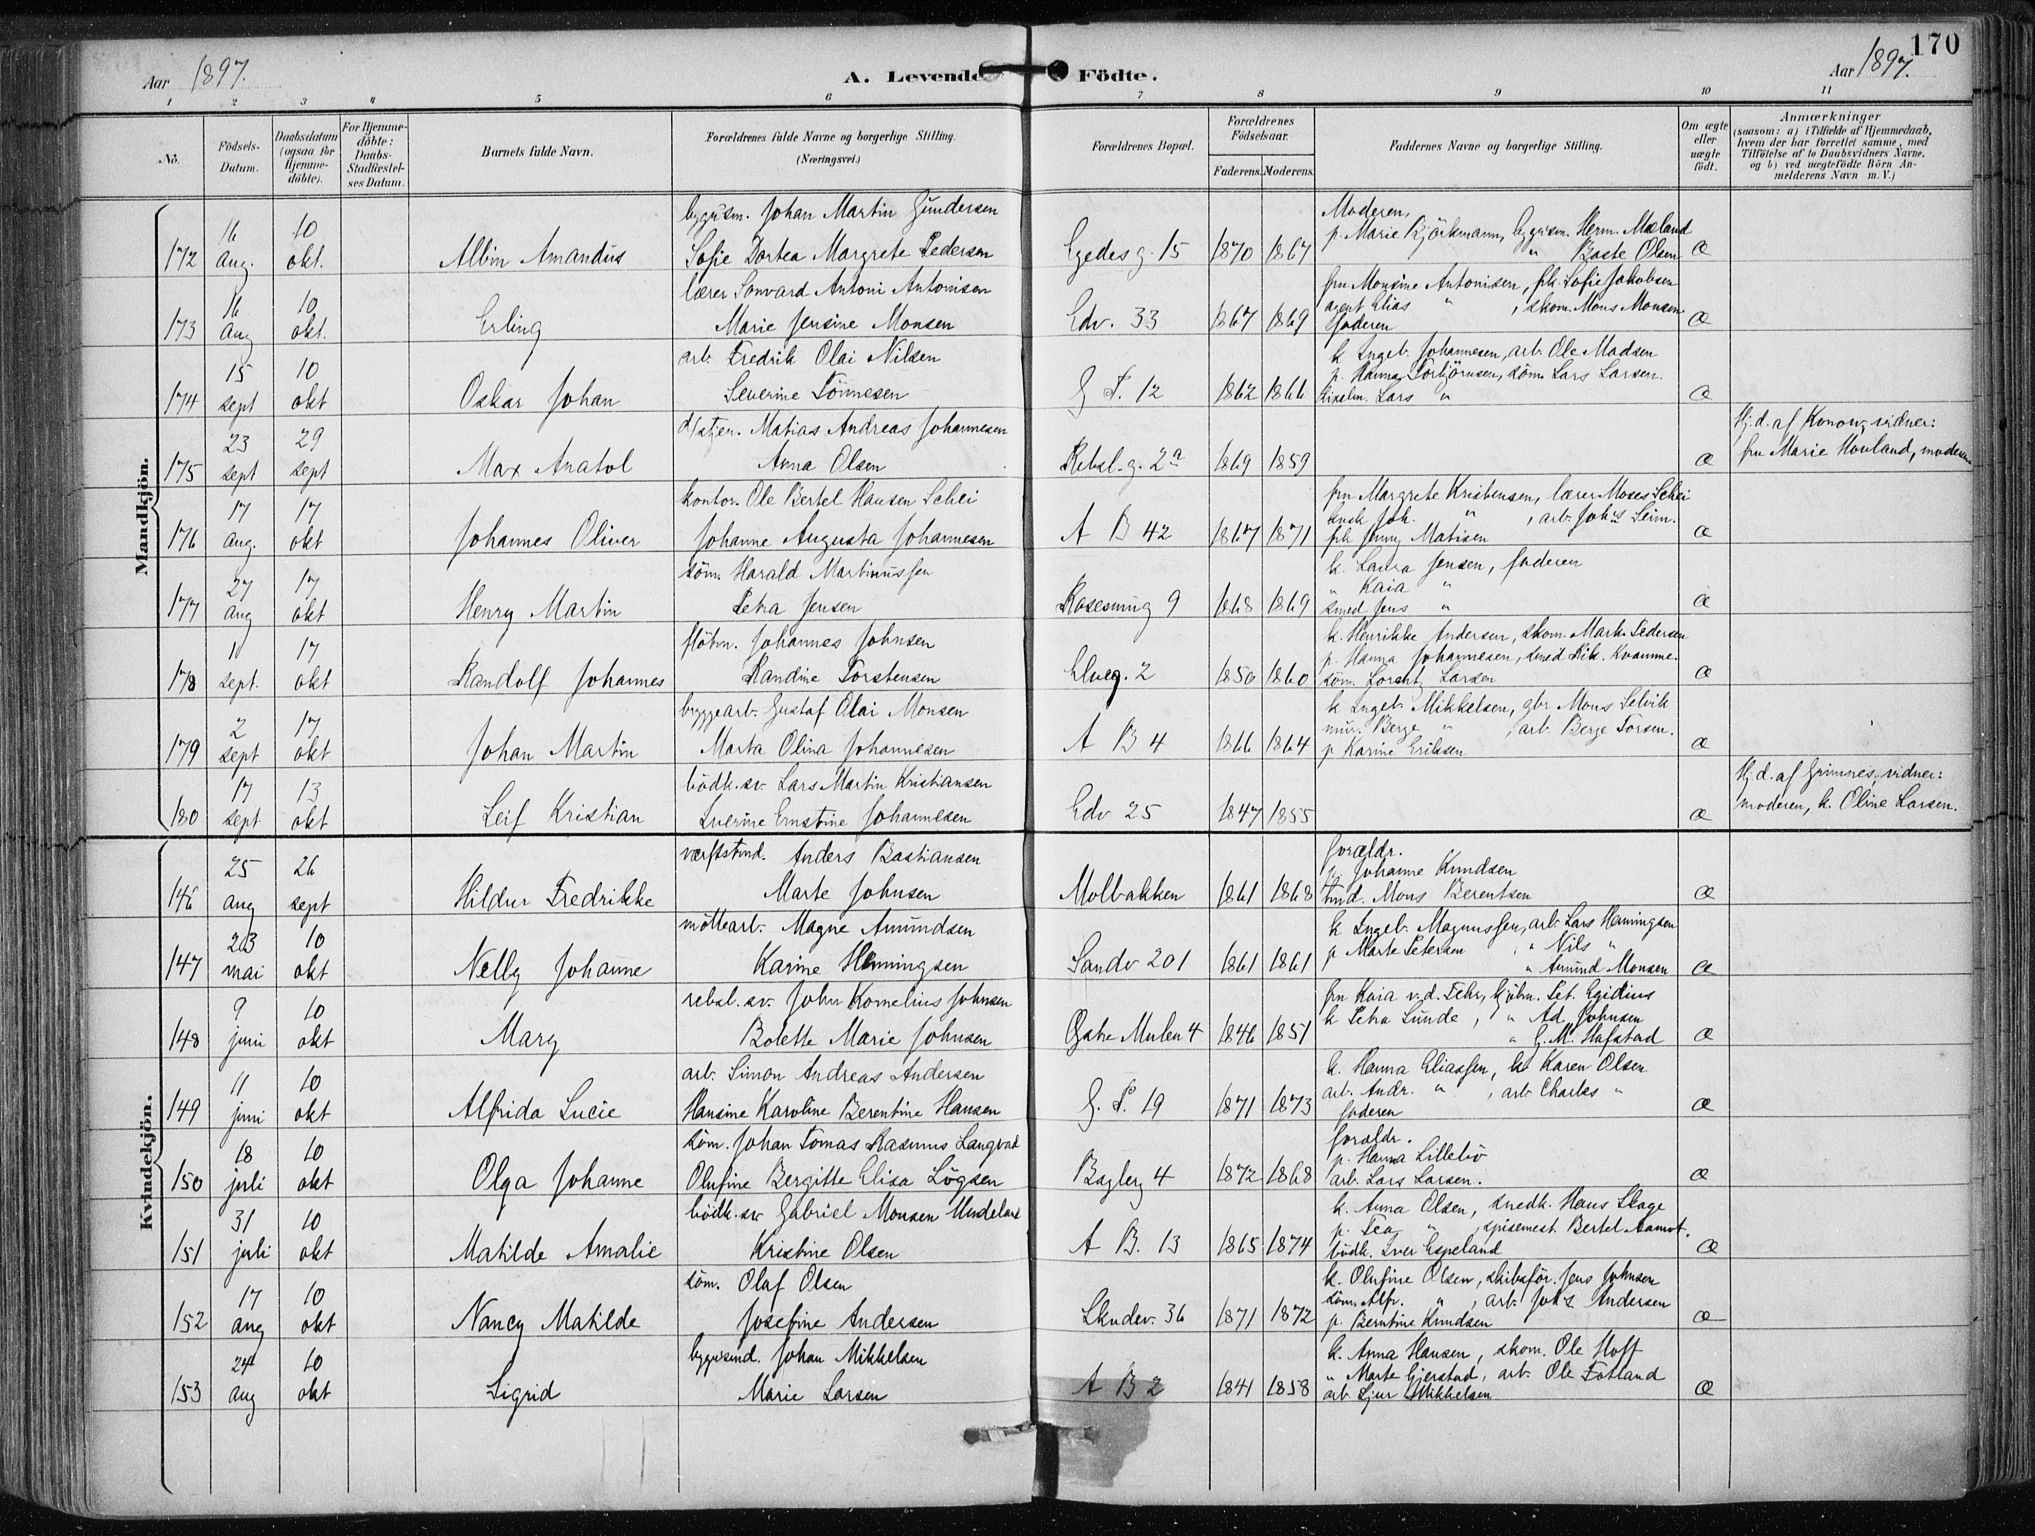 170
Aar 1897.
A. Levende Födte.
Aar 1897.
1 2 3 4 5 6 7 8 9 10 11
No.
Födsels-Datum.
Daabsdatum (ogsaa for Hjemme-döbte).
For Hjemme-döbte: Daabs-Stadfæstel-ses Datum.
Barnets fulde Navn.
Forældrenes fulde Navne og borgerlige Stilling. (Næringsvei.)
Forældrenes Bopæl.
Forældrenes Födselsaar.
Faderens. Moderens.
Faddernes Navne og borgerlige Stilling.
Om ægte eller uægte födt.
Anmærkninger (saasom: a) i Tilfælde af Hjemmedaab, hvem der har forrettet samme, med Tilföielse af to Daabsvidners Navne, og b) ved uægtefödte Börn An-melderens Navn m. V.)
Mandkjön.
byggsm. Johan Martin Gundersen Moderen,
16 10 p. Marie Björkmann, byggsm. Herm. Mæland
172 aug. okt. Albin Amandus Sofie Dortea Margrete Pedersen Egedes g. 15 1870 1867 " Baste Olsen æ
lærer Sonvard Antoni Antonisen fru Monsine Antonisen, frk. Sofie Jakobsen
16 10 agent Elias " , skom. Mons Monsen
173 aug okt. Erling Marie Jensine Monsen Edv. 33 1867 1869 faderen æ
arb. Fredrik Olai Nilsen k Ingeb. Johannesen, arb. Ole Madsen
15 10 p. Hanna Torbjörnsen, söm. Lars Larsen.
174 sept okt Oskar Johan Severine Tönnesen G P. 12 1862 1866 Lars " æ
Matias Andreas Johannesen Hj.d. af Konow, vidner:
23 29
175 sept sept Max Anatol Anna Olsen Rebsl.g. 2a 1869 1859 æ fru Marie Hovland, moderen
kontor. Ole Bertel Hansen Schei fru Margrete Kristensen, lærer Moses Schei
17 17 Joh. " , arb. Johs Seim.
176 aug. okt Johannes Oliver Johanne Augusta Johannesen A B 42 1867 1871 frk Jenny Matisen æ
söm. Harald Martinussen k. Laura Jensen, faderen
27 17 " Kaia "
177 aug okt Henry Martin Petra Jensen Rosesmug 9 1868 1869 smed Jens " æ
flöbm. Johannes Johnsen k. Henrikke Andersen, skom. Mark. Pedersen
11 17 p. Hanna Johannesen, smed Rik. Kvamme.
178 sept. okt Randolf Johannes Randine Torstensen Elveg. 2 1850 1860 söm. Lorentz Larsen æ
byggearb. Gustaf Olai Monsen k Ingeb. Mikkelsen, gbr Mons Selvik
2 17 mur. Berge " , arb. Berge Torsen.
179 sept okt Johan Martin Marta Olina Johannesen A B 4 1866 1864 p Karine Eriksen æ
bödk.sv. Lars Martin Kristiansen Hj.d. af Grimnes, vidner:
17 13
180 sept okt Leif Kristian Severine Ernstine Johannesen Edv 25 1847 1855 æ moderen, k. Oline Larsen.
Kvindekjön.
værftstmd. Anders Bastiansen forældr.
25 26 Johanne Knudsen
146 aug sept Hildur Fredrikke Marte Johnsen Molbakken 1861 1868 tmd. Mons Berentsen æ
möllearb. Magne Amundsen k Ingeb. Magnussen, arb. Lars Hemingsen
23 10 p Marte Petersen " Nils "
147 mai okt Nelly Johanne Karine Hemingsen Sandv 201 1861 1861 " Amund Monsen æ
rebsl.sv. John Kornelius Johnsen fru Kaia v.d. Fehr, kjöbm. Pet. Egidius
9 10 k Petra Sunde , " Ad. Johnsen
148 juni okt Mary Bolette Marie Johnsen Östre Mulen 4 1846 1851 " G.M. Hafstad æ
arb. Simon Andreas Andersen k. Hanna Eliassen, k Karen Olsen
11 10 arb. Andr. " , arb Charles "
149 juni okt Alfrida Lucie Hansine Karoline Berentine Hansen G. P. 19 1871 1873 faderen æ
söm. Johan Tomas Rasmus Langvad foraldr.
18 10 p. Hanna Lillebö
150 juli okt Olga Johanne Olufine Bergitte Elisa Lögsen Baglerg 4 1872 1868 arb. Lars Larsen. æ
bödk.sv Gabriel Monsen k. Anna Olsen, snedk. Hans Skage
31 10 p. Tea " , spisemest. Bertel Aamot.
151 juli okt Matilde Amalie Kristine Olsen A B. 13 1865 1874 bödk. Iver Espeland æ
söm. Olaf Olsen k. Olufine Olsen, skibsför. Jens Johnsen
17 10 söm. Alfr. " , arb. Johs Andersen
152 aug okt Nancy Matilde Josefine Andersen Skudev. 36 1871 1872 p. Berntine Knudsen æ
byggesmd. Johan Mikkelsen k. Anna Hansen, skom. Ole Hoff
24 10 " Marte Gjerstad, arb. Ole Fotland
153 aug okt Sigrid Marie Larsen A B 2 1841 1858 arb. Sjur Mikkelsen æ